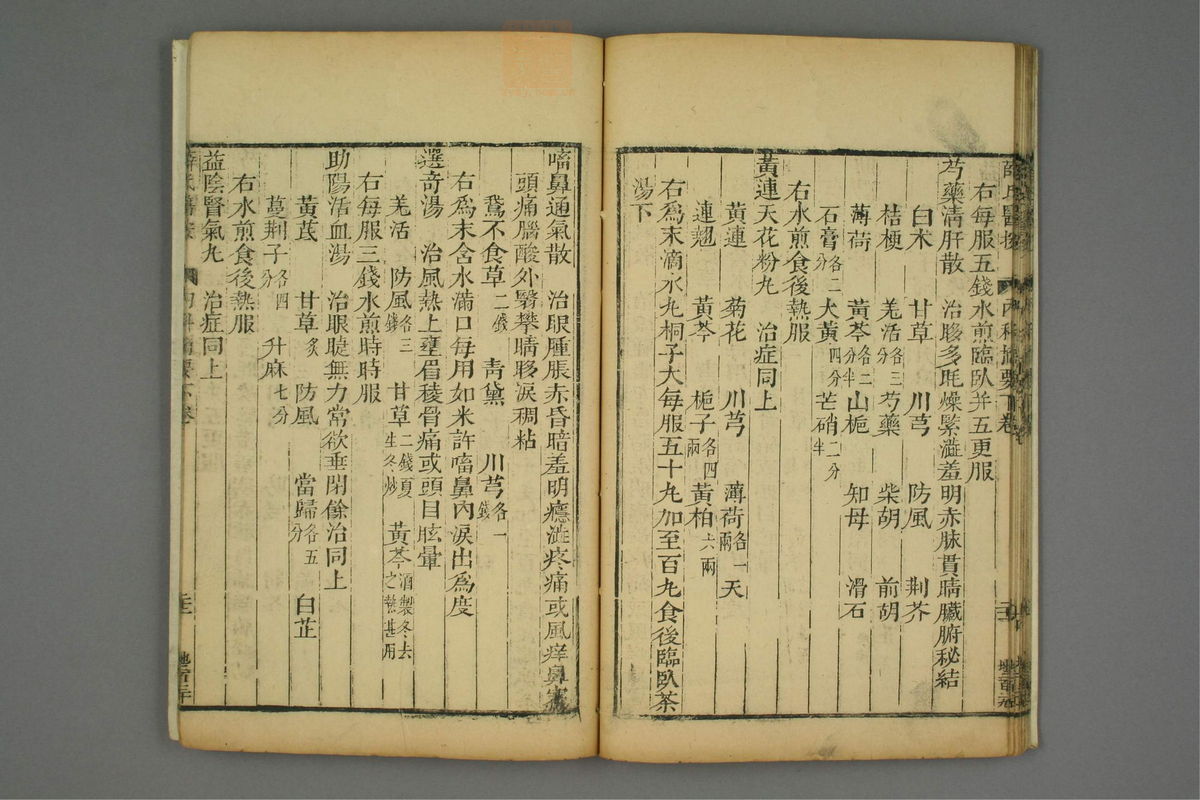 薛氏醫按 內科摘要下卷
右每服五錢水煎臨臥并五更服
芍藥清肝散 治眵多眊燥緊澁羞明赤脉貫睛臟腑秘結
白朮 甘草 川芎 防風 荆芥
桔梗 羌活各三分 芍藥 柴胡 前胡
薄荷 黃芩各二分半 山梔 知母 滑石
石膏各二分 大黃四分 芒硝二分半
右水煎食後熱服
黃連天花粉丸 治症同上
黃連 菊花 川芎 薄荷各一兩 天
連翹 黃芩 梔子各四兩 黃柏六兩
右爲末滴水丸桐子大每服五十丸加至百丸食後臨臥茶
湯下
㗜鼻通氣散 治眼腫脹赤昏暗羞明癮澁疼痛或風痒鼻塞
頭痛腦酸外翳攀睛眵淚稠粘
鵞不食草二錢 靑黛 川芎各一錢
右爲末含水滿口每用如米許㗜鼻內淚出爲度
選奇湯 治風熱上壅眉稜骨痛或頭目眩暈
羌活 防風各三錢 甘草二錢夏生冬炒 黃芩酒製冬去之熱甚用
右每服三錢水煎時時服
助陽活血湯 治眼睫無力常欲垂閉餘治同上
黃芪 甘草炙 防風 當歸各五分 白芷
蔓荆子各四分 升麻七分
右水煎食後熱服
益陰腎氣丸 治症同上
薛氏醫按 內科摘要下卷